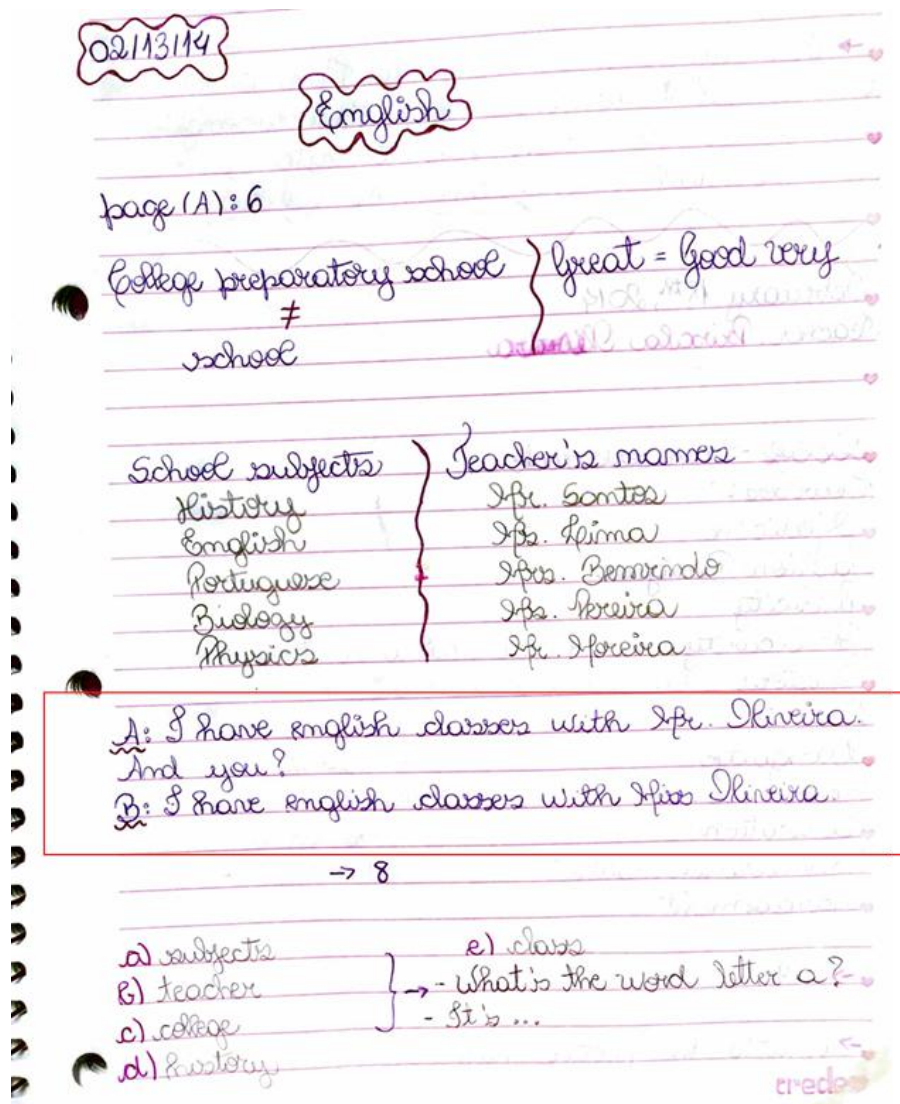 02/13/14
English
page (A): 6
College preparatory school
≠
school
Great = Good very
School subjects
History
English
Portuguese
Biology
Physics
Teacher's names
Mr. Santos
Ms. Lima
Mrs. Benvindo
Ms. Pereira
Mr. Moreira
A: I have english classes with Mr. Oliveira.
And you?
B: I have english classes with Miss Oliveira.
→ 8
a) subjects
b) teacher
c) college
d) history
e) class
→ - What's the word letter a?
- It's ...
credeal